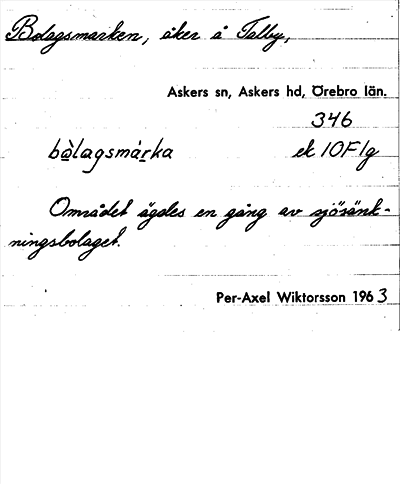 Bolagsmarken, åker å Talby,
Askers sn, Askers hd, Örebro län.
346
bòlagsmàrka ek 10F1g
Området ägdes en gång av sjösänk-
ningsbolaget.
Per-Axel Wiktorsson 1963